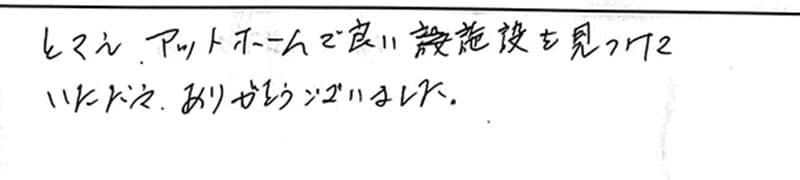 とてもアットホームで良い施設を見つけて
いただき、ありがとうございました。